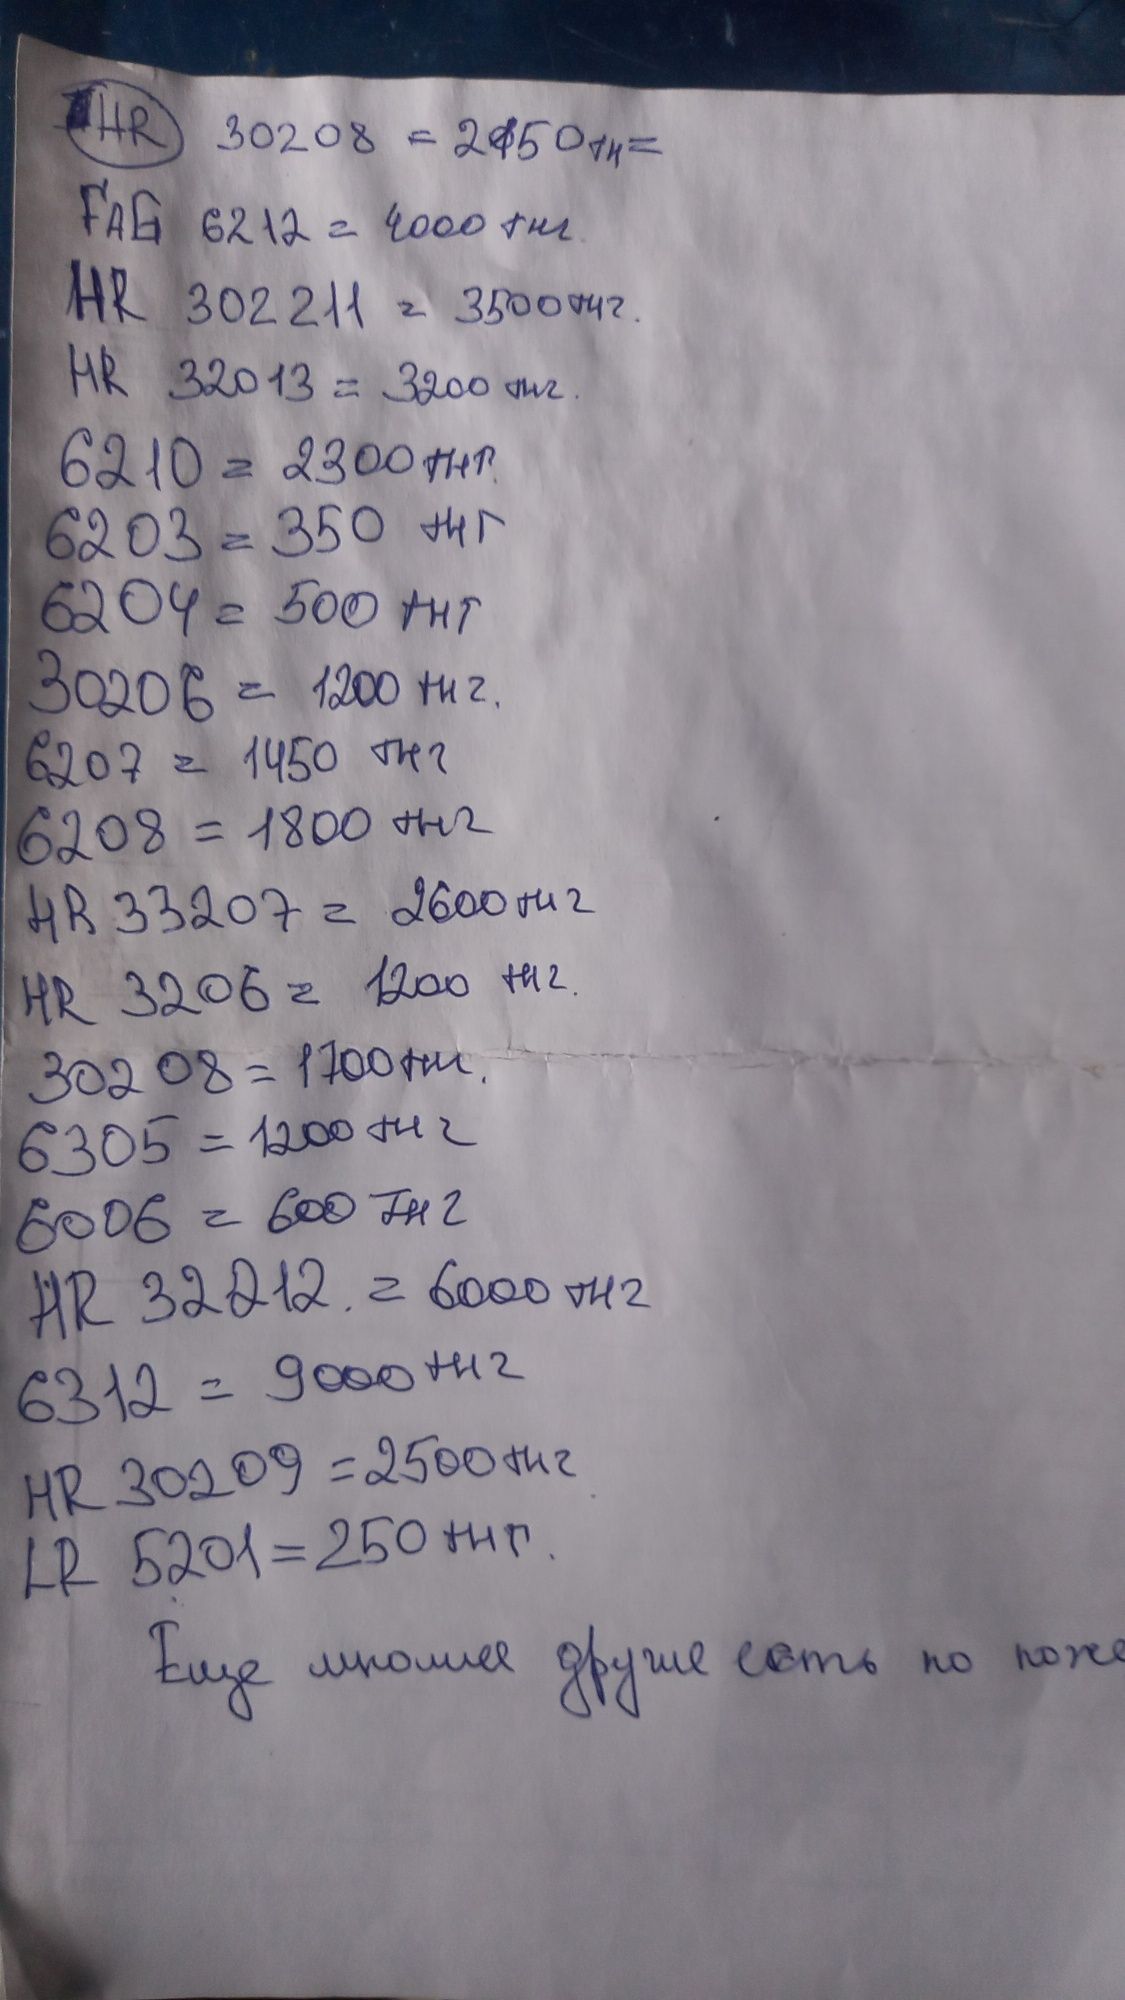 HR 30208 = 2150тн=
FAG 6212 = 4000 тнг.
HR 302211 = 3500тнг.
HR 32013 = 3200 тнг.
6210 = 2300тнг.
6203 = 350 тнг
6204 = 500 тнг
30206 = 1200 тнг.
6207 = 1450 тнг
6208 = 1800 тнг
HR 33207 = 2600тнг
HR 3206 = 1200 тнг.
30208 = 1700тн.
6305 = 1200 тнг
6006 = 600 Тнг
HR 32212. = 6000 тнг
6312 = 9000 тнг
HR 30209 = 2500тнг
LR 5201 = 250 тнг.
Еще многие другие есть по